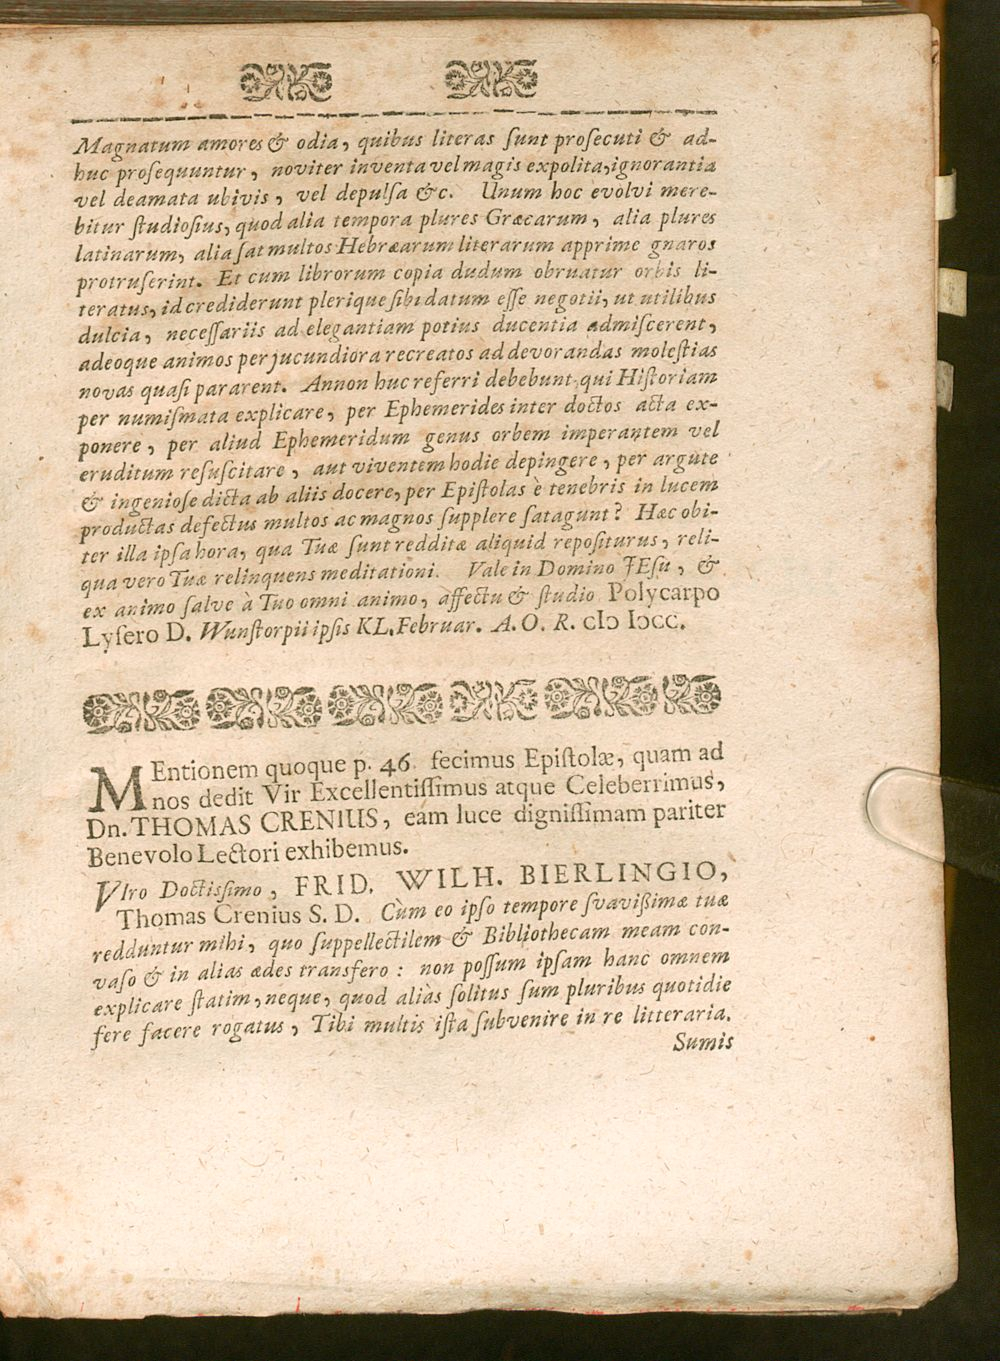 Magnatum amores & odia, quibus literas ſunt proſecuti & ad-
huc proſequuntur, noviter inventa vel magis expolita, ignorantia
vel deamata ubivis, vel depulſa &c. Unum hoc evolvi mere-
bitur ſtudioſius, quod alia tempora plures Græcarum, alia plures
latinarum, alia ſat multos Hebræarum literarum apprime gnaros
protruſerint. Et cum librorum copia dudum obruatur orbis li-
teratus, id crediderunt plerique ſibi datum eſſe negotii, ut utilibus
dulcia, neceſſariis ad elegantiam potius ducentia admiſcerent,
adeoque animos per jucundiora recreatos ad devorandas moleſtias
novas quaſi pararent. Annon huc referri debebunt, qui Hiſtoriam
per numiſmata explicare, per Ephemerides inter doctos acta ex-
ponere, per aliud Ephemeridum genus orbem imperantem vel
eruditum reſuſcitare, aut viventem hodie depingere, per argute
& ingenioſe dicta ab aliis docere, per Epiſtolas è tenebris in lucem
productas defectus multos ac magnos ſupplere ſatagunt? Hæc obi-
ter illa ipſa hora, qua Tuæ ſunt redditæ aliquid repoſiturus, reli-
qua vero Tuæ relinquens meditationi. Vale in Domino JEſu, &
ex animo ſalve à Tuo omni animo, affectu & ſtudio Polycarpo
Lyſero D. Wunſtorpii ipſis KL. Februar. A. O. R. cIɔ Iɔcc.
MEntionem quoque p. 46 fecimus Epiſtolæ, quam ad
nos dedit Vir Excellentiſſimus atque Celeberrimus,
Dn. THOMAS CRENIUS, eam luce digniſſimam pariter
Benevolo Lectori exhibemus.
VIro Doctiſſimo, FRID. WILH. BIERLINGIO,
Thomas Crenius S. D. Cùm eo ipſo tempore ſvavißimæ tuæ
redduntur mihi, quo ſuppellectilem & Bibliothecam meam con-
vaſo & in alias ædes transfero: non poſſum ipſam hanc omnem
explicare ſtatim, neque, quod aliàs ſolitus ſum pluribus quotidie
fere facere rogatus, Tibi multis iſta ſubvenire in re litteraria.
Sumis